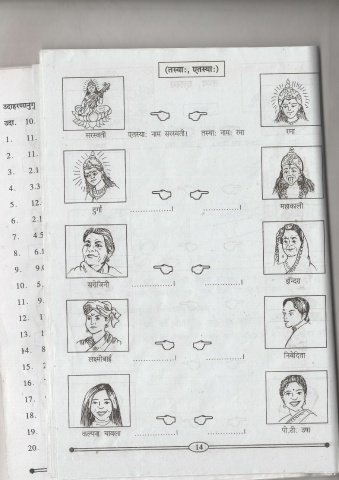 (तस्याः, एतस्याः)
उदाहरणानुगु
उदा. 10.
1. 11.
2. 11.
3. 2.1
4. 3.3
5. 12.
6. 2.1
7. 4.5
8. 6.1
9. 9.0
10. 5.
11. 9.
12. 11
13. 1
14. 8
15.
16.
17.
18.
19.
20.
सरस्वती एतस्याः नाम सरस्वती। तस्याः नामः रमा रमा
दुर्गा ..............। ..............। महाकाली
सरोजिनी ..............। ..............। इन्दिरा
लक्ष्मीबाई ..............। ..............। निवेदिता
कल्पना चावला ..............। ..............। पी.टी. उषा
14